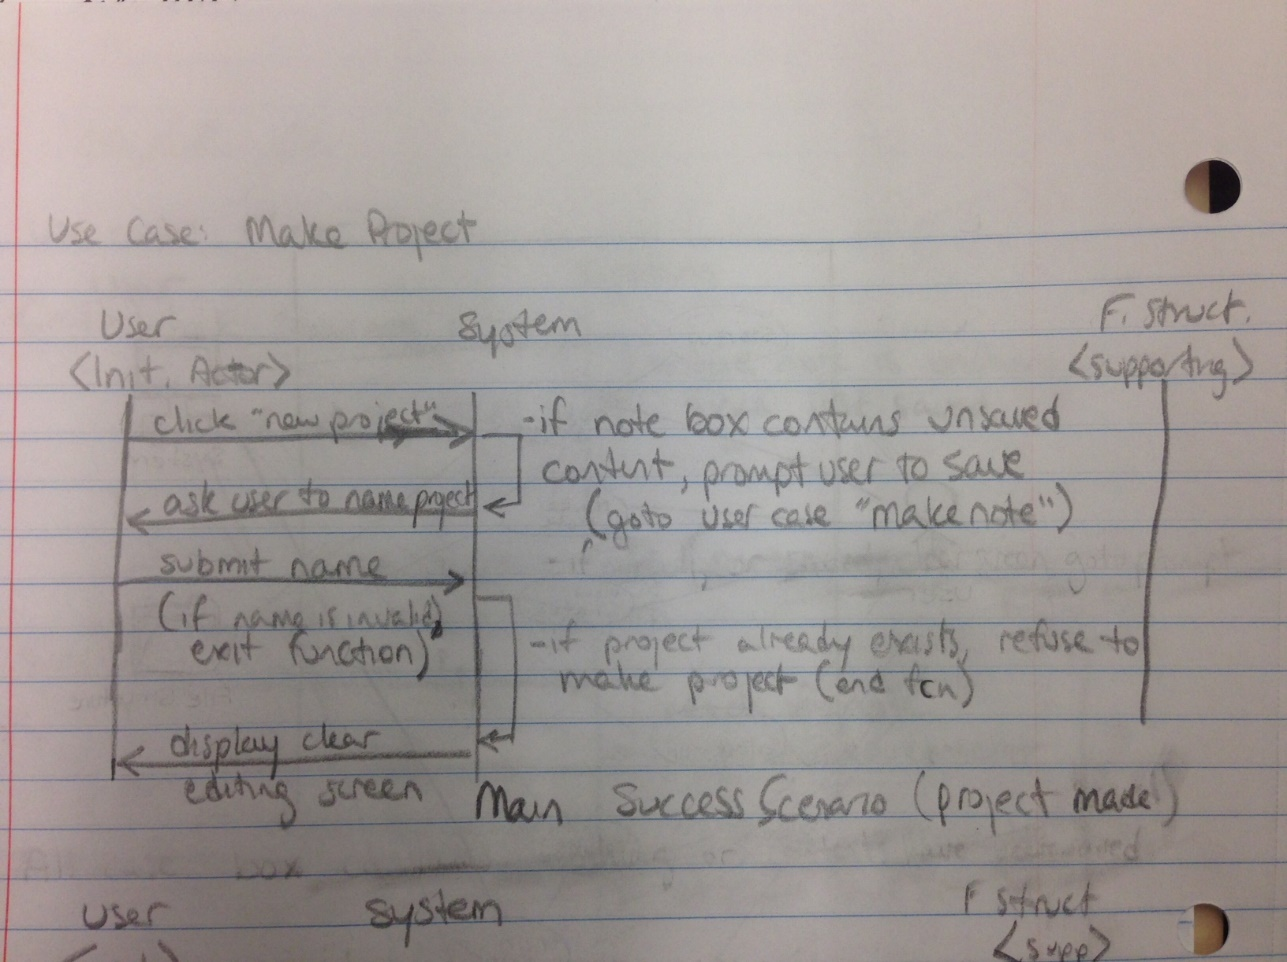 Use Case: Make Project
User
System
F. Struct.
<Init. Actor>
<supporting>
click "new project"
-if note box contains unsaved
content, prompt user to save
(goto user case "make note")
ask user to name project
submit name
(if name is invalid,
exit function)
-if project already exists, refuse to
make project (end fcn)
display clear
editing screen
Main Success Scenario (project made)
User
System
F struct
<supp>